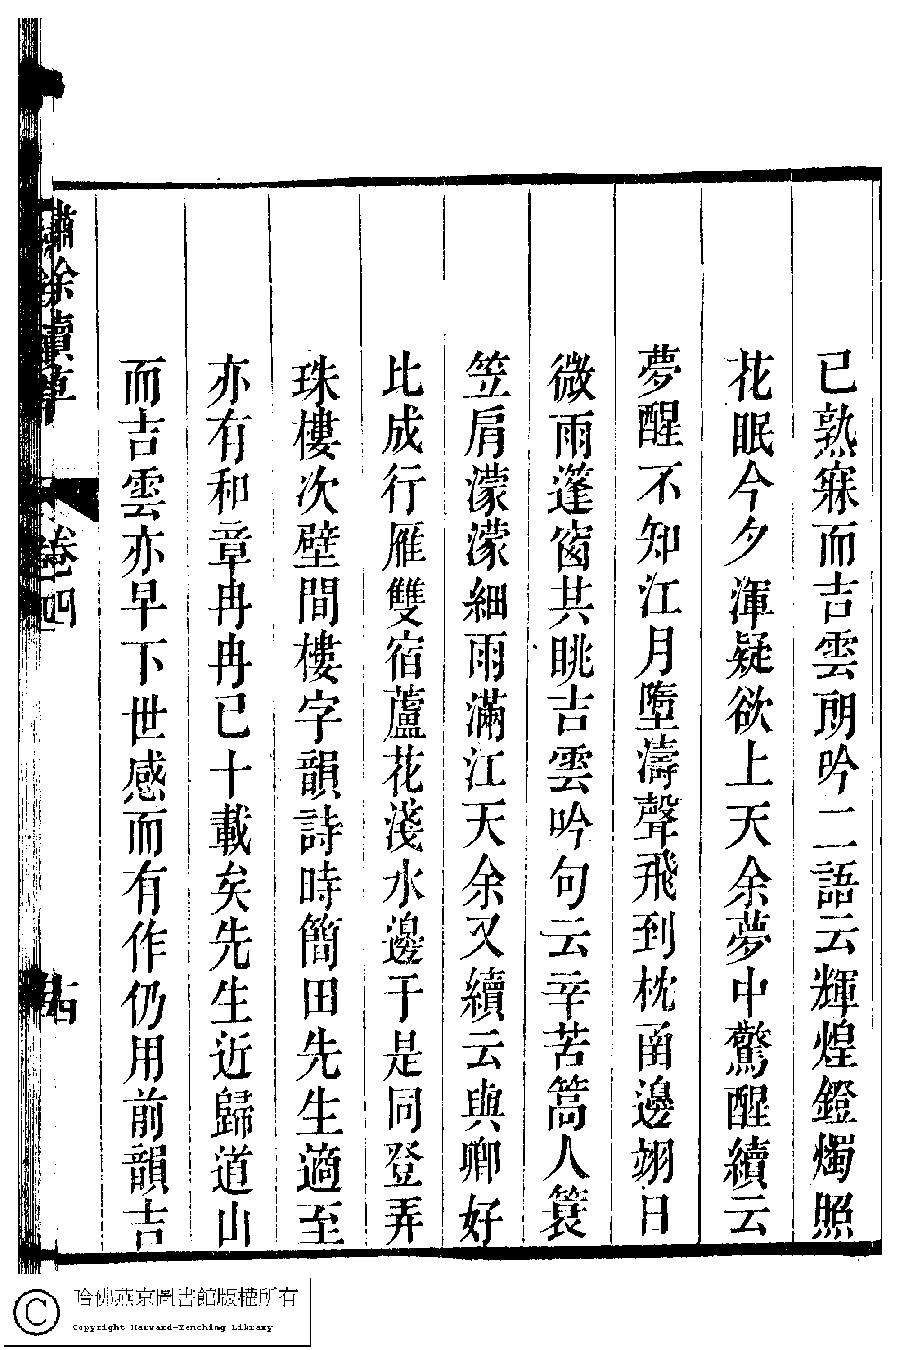 已熟寐而吉雲朗吟二語云輝煌鐙燭照
花眠今夕渾疑欲上天余夢中驚醒續云
夢醒不知江月墮濤聲飛到枕函邊翊日
微雨蓬窗共眺吉雲吟句云辛苦篙人簑
笠肩濛濛細雨滿江天余又續云與卿好
比成行雁雙宿蘆花淺水邊于是同登弄
珠樓次壁間樓字韻詩時簡田先生適至
亦有和章冉冉已十載矣先生近歸道山
而吉雲亦早下世感而有作仍用前韻吉
餘續草
卷四
哈佛燕京圖書館版權所有
Copyright Harvard-Yenching Library